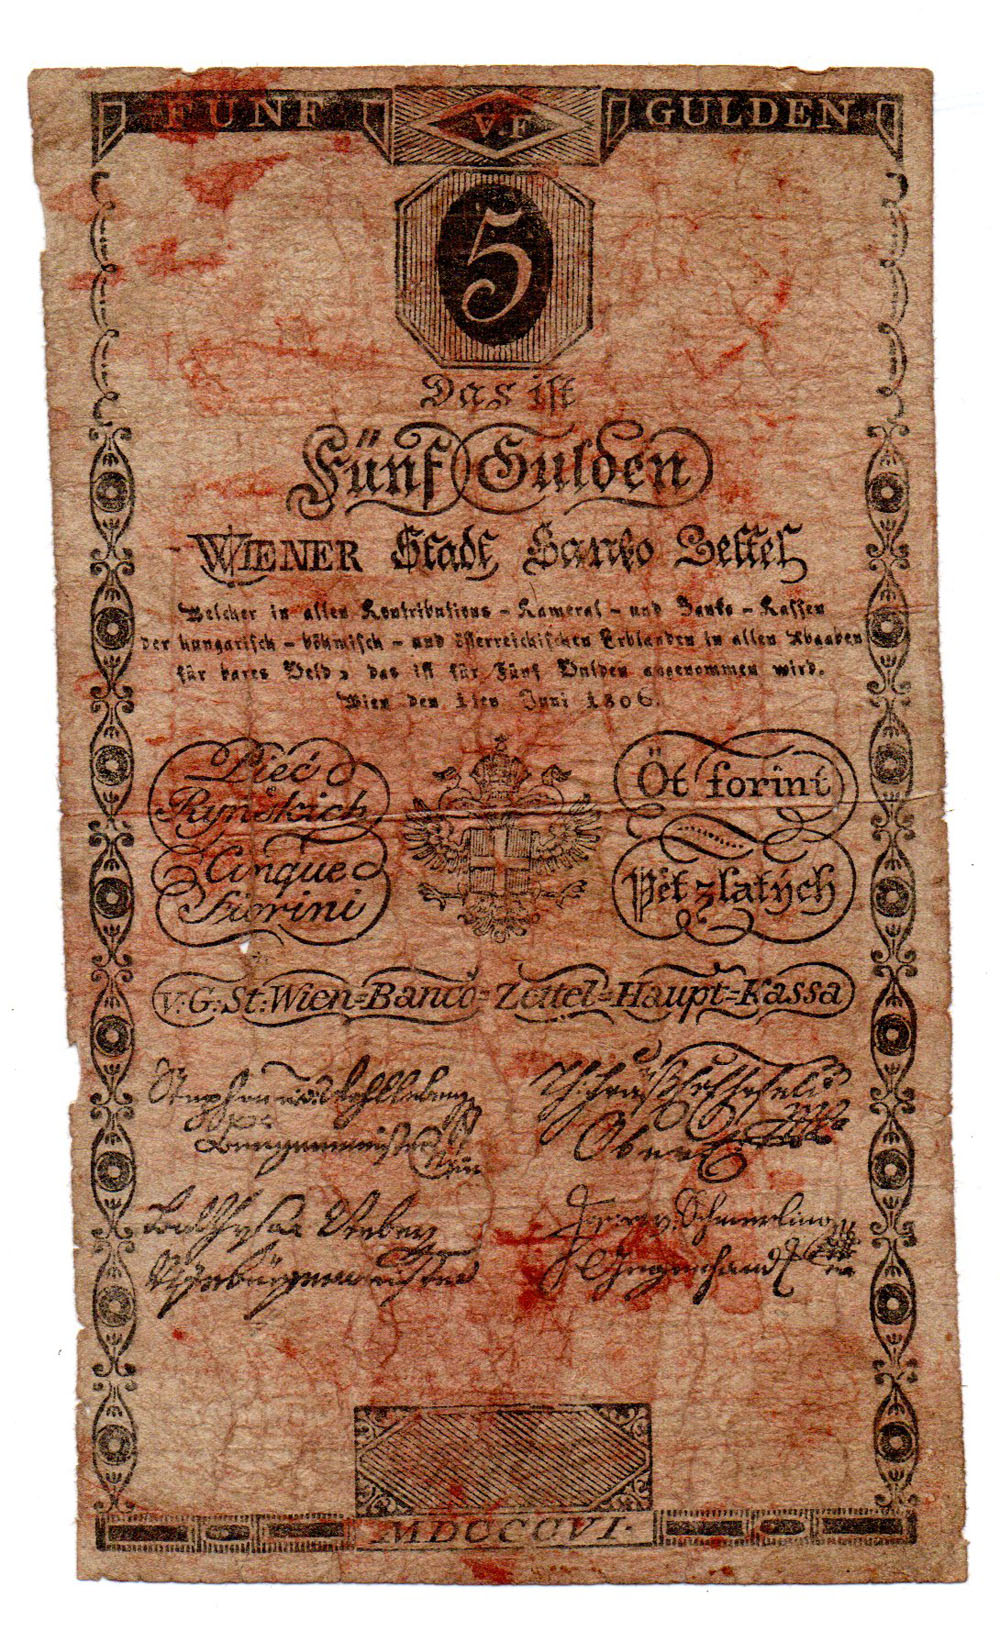 FÜNF V.F GULDEN
5
Das ist
Fünf Gulden
WIENER Stadt Banko Zettel
Welcher in allen Kontributions - Kameral - und Banko - Kassen
der hungarisch - böhmisch - und österreichischen Erblanden in allen Abgaben
für bares Geld, das ist für Fünf Gulden angenommen wird.
Wien den 1ten Juni 1806.
Pieć
Ryńskich
Cinque
Fiorini
Öt forint
Pět zlatých
V:G:St:Wien=Banco=Zettel=Haupt=Kassa
Stephan
Burgermeister
Ober
v. Schmerling
MDCCCVI.